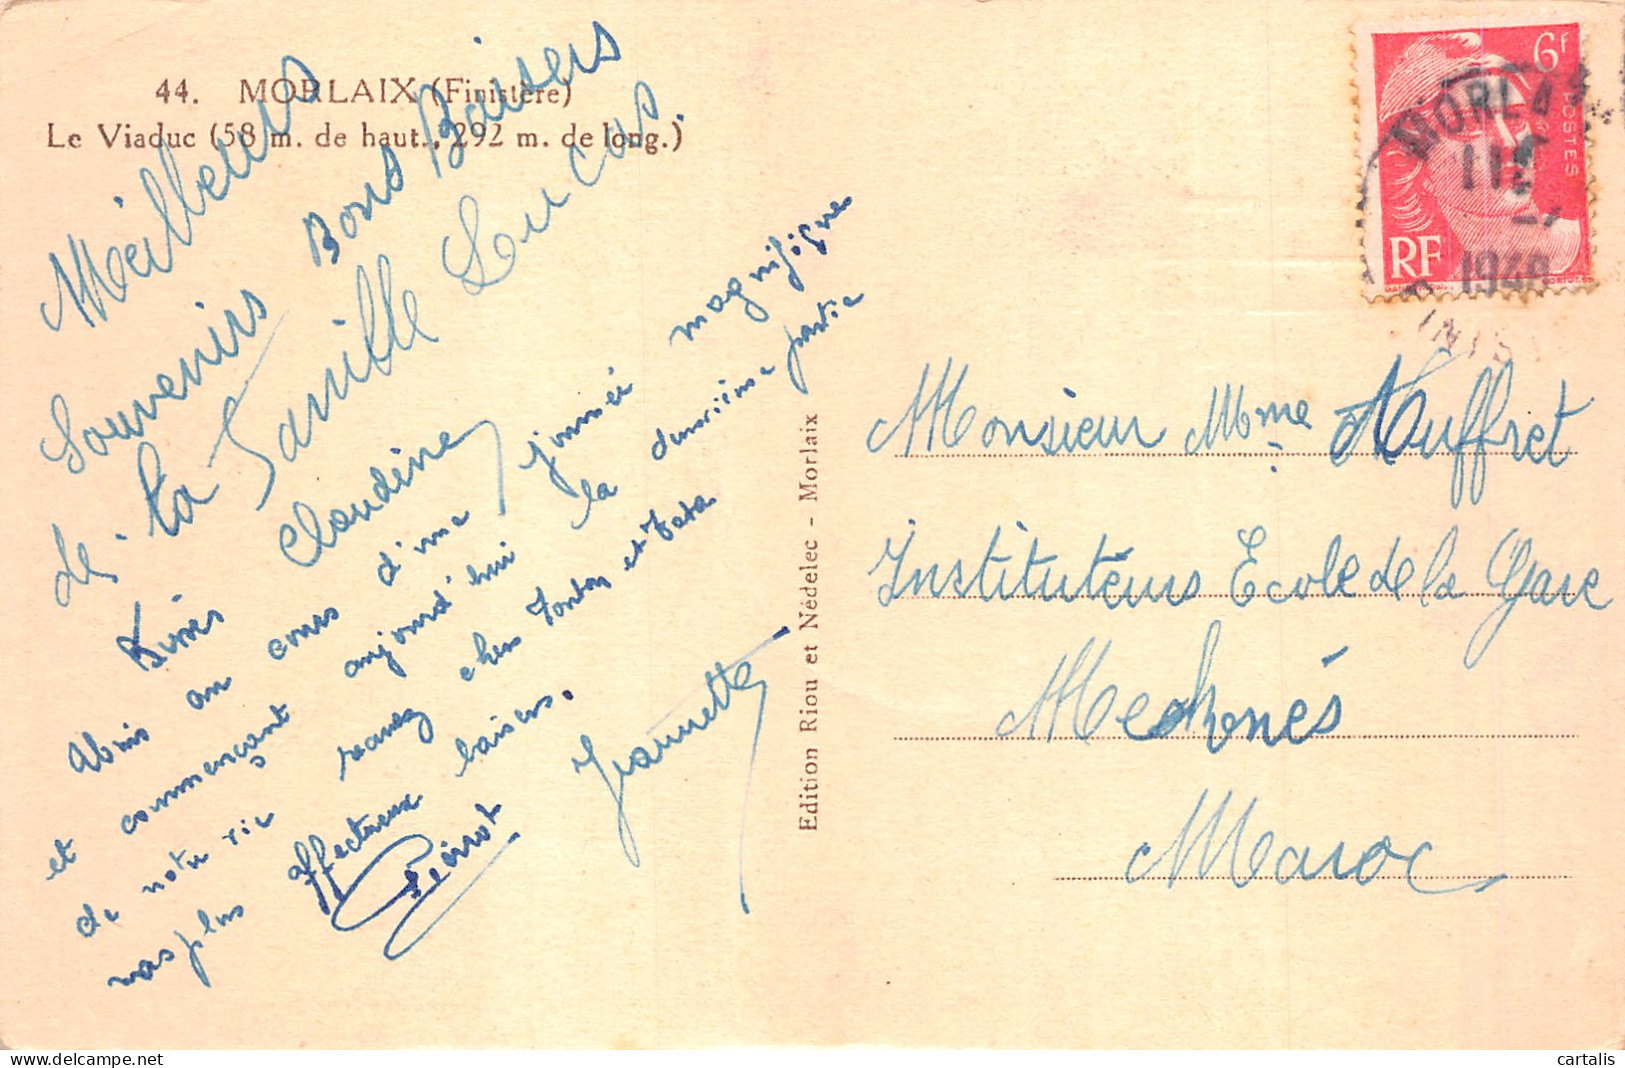 44. MORLAIX (Finistère)
Le Viaduc (58 m. de haut., 292 m. de long.)
Meilleurs
Souvenirs Bons Baisers
de la Famille Lucas
Claudine
au cours d'une journée magnifique
et commençant aujourd'hui la deuxième partie
de notre vie recevez chers Tonton et Tata
nos plus affectueux baisers.
Pierrot
Jeannette
Edition Riou et Nédelec - Morlaix
6f
POSTES
RF
MORLAIX
1946
FINIST
Monsieur Mme Auffret
Instituteurs Ecole de la Gare
Meknès
Maroc
cartalis
delcampe.net